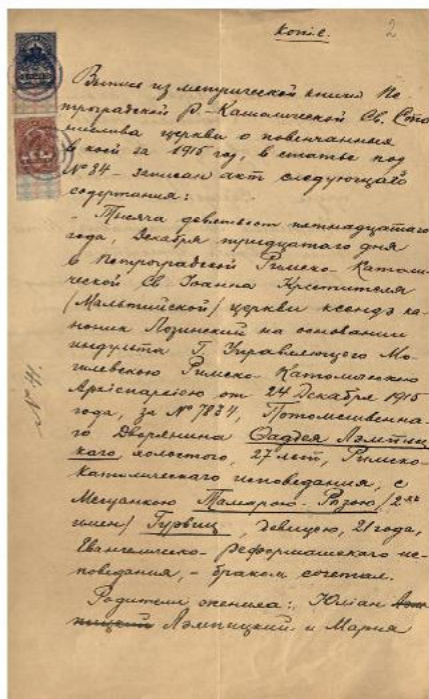 Копiя. 2
Выпись из метрической книги Пе-
троградской Р-Католической Св. Ста-
нислава церкви о повенчанных
в коей за 1915 год, в статье под
№34 - записан акт следующаго
содержания:
"Тысяча девятьсот пятнадцатаго
года, Декабря тридцатаго дня
в Петроградской Римско-Католи-
ческой Св Иоанна Крестителя
/Мальтийской/ церкви ксендз ка-
ноник Лозинский на основании
индульта Г. Управляющего Мо-
гилевскою Римско-Католическою
Архiепархiею от 24 Декабря 1915
года, за №7834, Потомственна-
го Дворянина Фаддея Лэмпиц
каго холостого, 27 лет, Римско-
Католическаго исповедания, с
Мещанкою Тамарою-Розою /2хъ
имен/ Гурвиц, девицею, 21 года,
Евангелическо-Реформатскаго ис-
поведания, - браком сочетал.
Родители жениха: Юлiан
Лэмпицкий и Мария
№ 41.